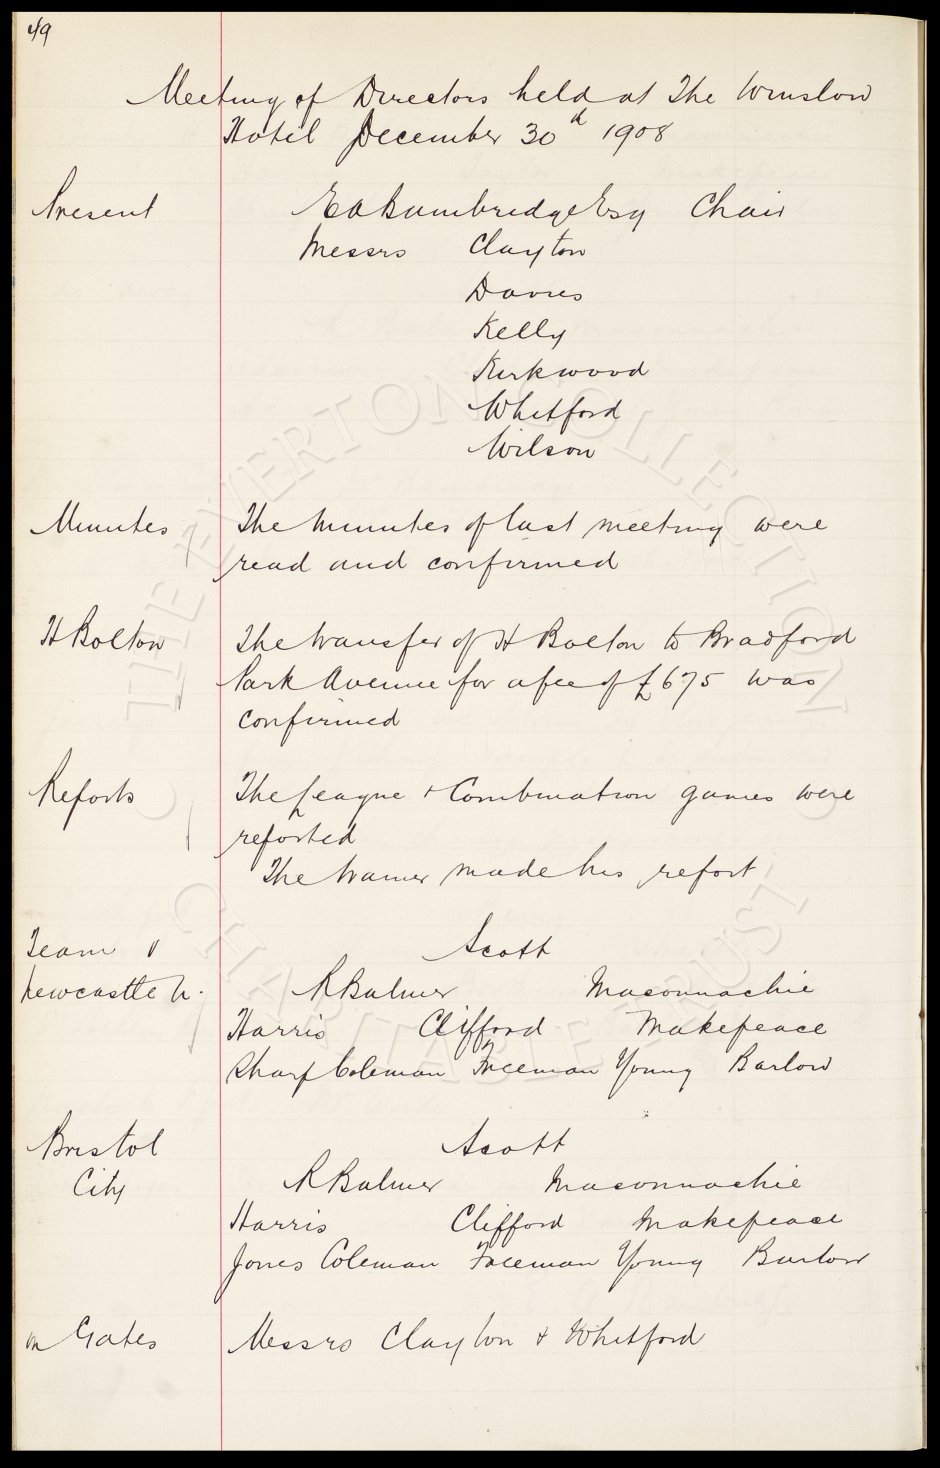 49
Meeting of Directors held at The Winslow
Hotel December 30th 1908
Present E A Bainbridge Esq Chair
Messrs Clayton
Davies
Kelly
Kirkwood
Whitford
Wilson
Minutes The Minutes of last meeting were
read and confirmed
H Bolton The transfer of H Bolton to Bradford
Park Avenue for a fee of £675 was
confirmed
Reports The League & Combination games were
reported
The trainer made his report
Team v Scott
Newcastle U. R Balmer Maconnachie
Harris Clifford Makepeace
Sharp Coleman Freeman Young Barlow
Bristol Scott
City R Balmer Maconnachie
Harris Clifford Makepeace
Jones Coleman Freeman Young Barlow
on Gates Messrs Clayton & Whitford
THE EVERTON COLLECTION
CHARITABLE TRUST